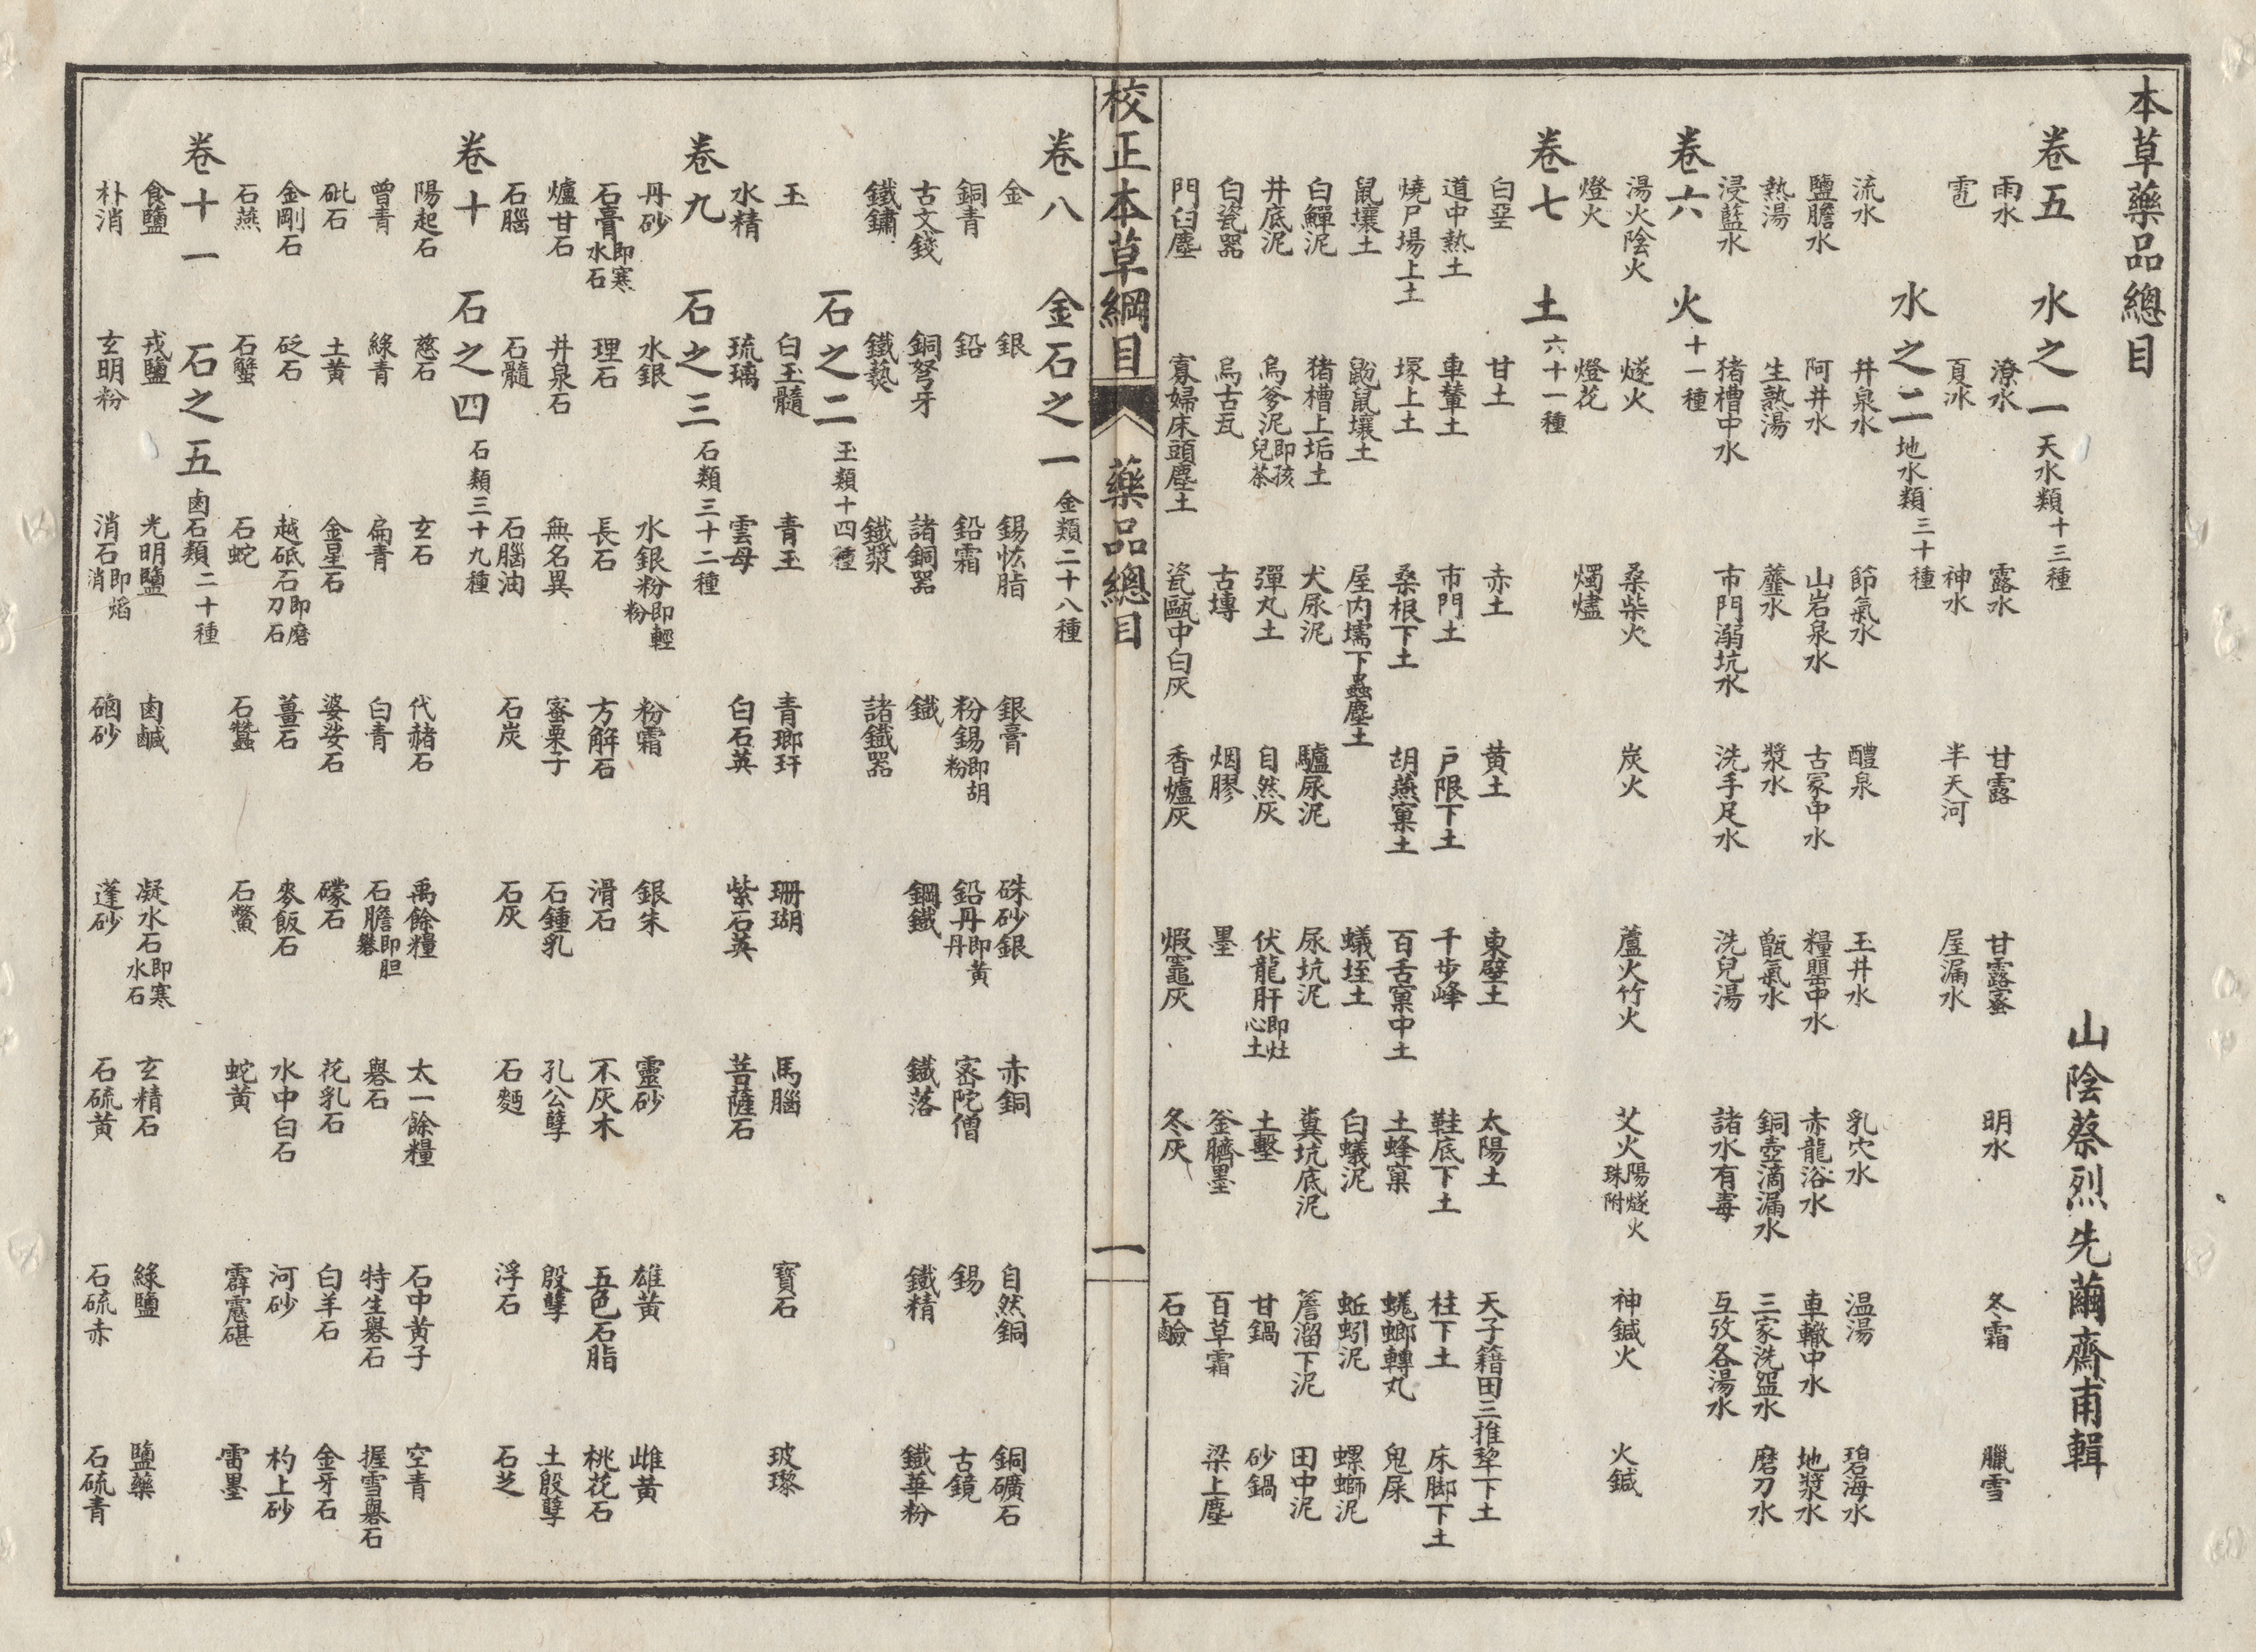 本草藥品總目
山陰蔡烈先繭齋甫輯
卷五 水之一 天水類十三種
雨水 潦水 露水 甘露 甘露蜜 明水 冬霜 臘雪
雹 夏冰 神水 半天河 屋漏水
水之二 地水類三十種
流水 井泉水 節氣水 醴泉 玉井水 乳穴水 温湯 碧海水
鹽膽水 阿井水 山岩泉水 古冢中水 糧罌中水 赤龍浴水 車轍中水 地漿水
熱湯 生熟湯 虀水 漿水 甑氣水 銅壺滴漏水 三家洗盌水 磨刀水
浸藍水 猪槽中水 市門溺坑水 洗手足水 洗兒湯 諸水有毒 互攷各湯水
卷六 火 十一種
湯火陰火 燧火 桑柴火 炭火 蘆火竹火 艾火陽燧火珠附 神鍼火 火鍼
燈火 燈花 燭燼
卷七 土 六十一種
白堊 甘土 赤土 黄土 東壁土 太陽土 天子籍田三推犂下土
道中熱土 車輦土 市門土 戶限下土 千步峰 鞋底下土 柱下土 床脚下土
燒尸場上土 塚上土 桑根下土 胡燕窠土 百舌窠中土 土蜂窠 蜣螂轉丸 鬼屎
鼠壤土 鼢鼠壤土 屋内壖下蟲塵土 蟻垤土 白蟻泥 蚯蚓泥 螺螄泥
白鱓泥 猪槽上垢土 犬尿泥 驢尿泥 尿坑泥 糞坑底泥 簷溜下泥 田中泥
井底泥 烏爹泥即孩兒茶 彈丸土 自然灰 伏龍肝即灶心土 土墼 甘鍋 砂鍋
白瓷器 烏古瓦 古塼 烟膠 墨 釜臍墨 百草霜 梁上塵
門臼塵 寡婦床頭塵土 瓷甌中白灰 香爐灰 煆竈灰 冬灰 石鹼
校正本草綱目 藥品總目 一
卷八 金石之一 金類二十八種
金 銀 錫恡脂 銀膏 硃砂銀 赤銅 自然銅 銅礦石
銅青 鉛 鉛霜 粉錫即胡粉 鉛丹即黄丹 密陀僧 錫 古鏡
古文錢 銅弩牙 諸銅器 鐵 鋼鐵 鐵落 鐵精 鐵華粉
鐵鏽 鐵爇 鐵漿 諸鐵器
石之二 玉類十四種
玉 白玉髓 青玉 青瑯玕 珊瑚 馬腦 寶石 玻瓈
水精 琉璃 雲母 白石英 紫石英 菩薩石
卷九 石之三 石類三十二種
丹砂 水銀 水銀粉即輕粉 粉霜 銀朱 靈砂 雄黄 雌黄
石膏即寒水石 理石 長石 方解石 滑石 不灰木 五色石脂 桃花石
爐甘石 井泉石 無名異 蜜栗子 石鍾乳 孔公孽 殷孽 土殷孽
石腦 石髓 石腦油 石炭 石灰 石麪 浮石 石芝
卷十 石之四 石類三十九種
陽起石 慈石 玄石 代赭石 禹餘糧 太一餘糧 石中黄子 空青
曾青 綠青 扁青 白青 石膽即胆礬 礜石 特生礜石 握雪礜石
砒石 土黄 金星石 婆娑石 礞石 花乳石 白羊石 金牙石
金剛石 砭石 越砥石即磨刀石 薑石 麥飯石 水中白石 河砂 杓上砂
石燕 石蟹 石蛇 石蠶 石鱉 蛇黄 霹靂碪 雷墨
卷十一 石之五 鹵石類二十種
食鹽 戎鹽 光明鹽 鹵鹹 凝水石即寒水石 玄精石 綠鹽 鹽藥
朴消 玄明粉 消石即焰消 硇砂 蓬砂 石硫黄 石硫赤 石硫青